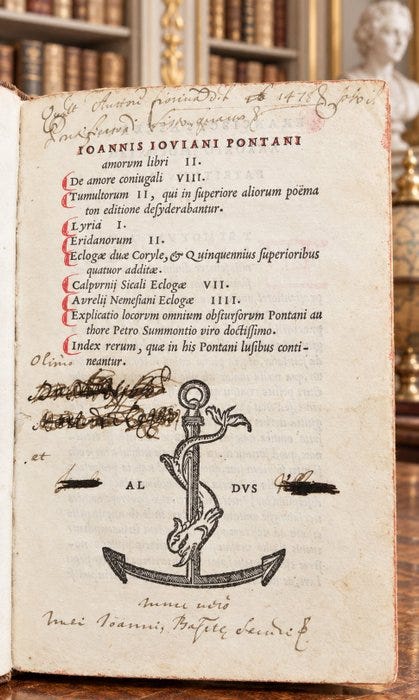 IOANNIS IOVIANI PONTANI
amorvm libri II.
De amore coniugali VIII.
Tumultorum II, qui in superiore aliorum poëma
ton editione desyderabantur.
Lyrici I.
Eridanorum II.
Eclogæ duæ Coryle, & Quinquennius superioribus
quatuor additæ.
Calpvrnij Siculi Eclogæ VII.
Avrelij Nemesiani Eclogæ IIII.
Explicatio locorvm omnium obstrsorvm Pontani au
thore Petro Summontio viro doctissimo.
Index rerum, quæ in his Pontani lusibus conti-
neantur.
Olim
et
AL DVS
nunc vero
mei Ioannis, Bapte